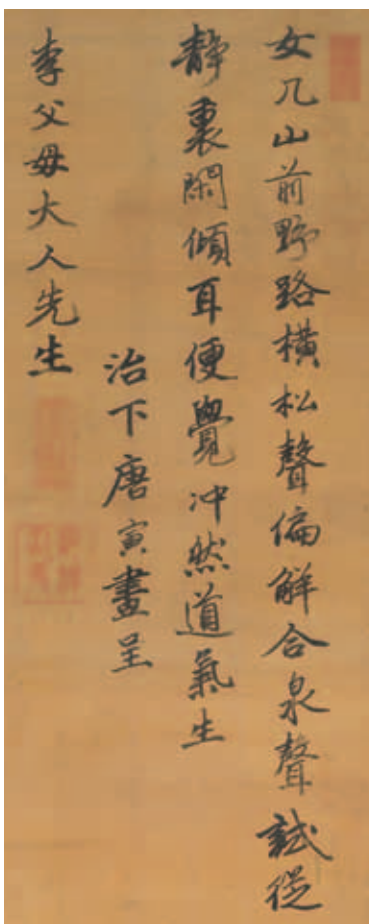 女几山前野路橫松聲偏解合泉聲試從
靜裏閒傾耳便覺沖然道氣生
治下唐寅畫呈
李父母大人先生